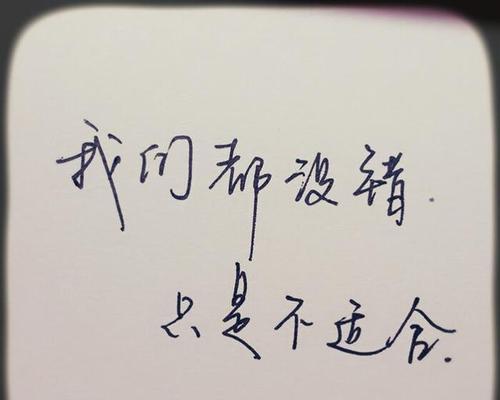 我们都没错.
只是不适合.